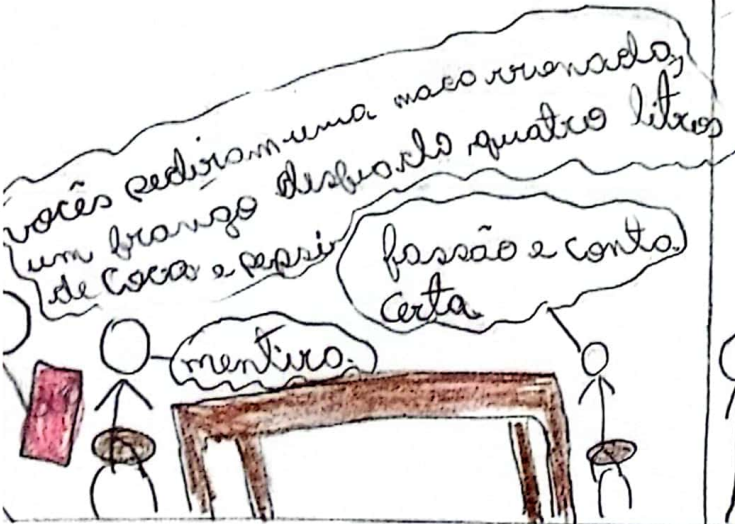 vocês pediram uma macarronada,
um frango desfiado, quatro litros
de coca e pepsi
fassão e conta
certa.
mentira.